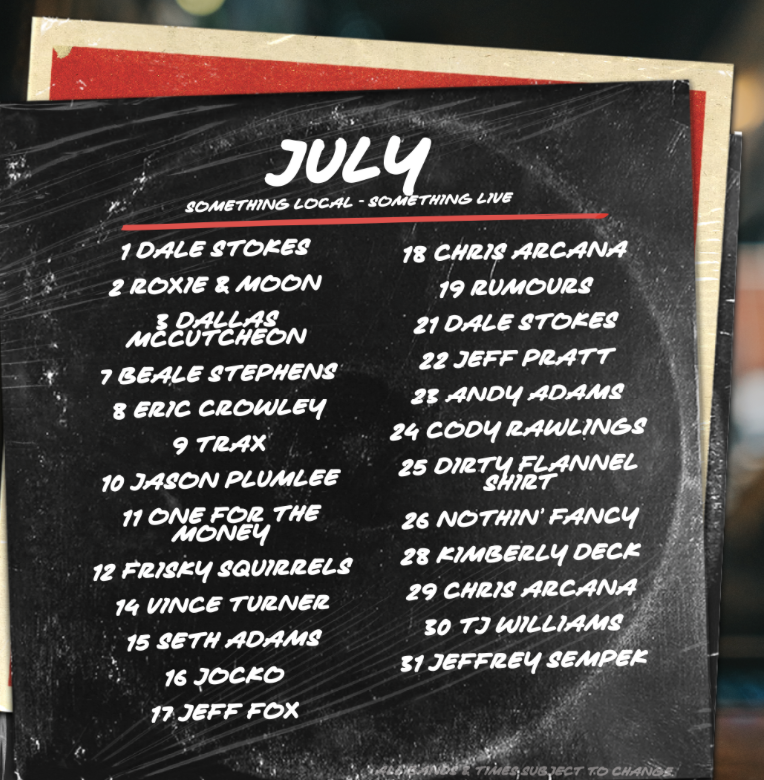 JULY
SOMETHING LOCAL - SOMETHING LIVE
1 DALE STOKES
2 ROXIE & MOON
3 DALLAS
MCCUTCHEON
7 BEALE STEPHENS
8 ERIC CROWLEY
9 TRAX
10 JASON PLUMLEE
11 ONE FOR THE
MONEY
12 FRISKY SQUIRRELS
14 VINCE TURNER
15 SETH ADAMS
16 JOCKO
17 JEFF FOX
18 CHRIS ARCANA
19 RUMOURS
21 DALE STOKES
22 JEFF PRATT
23 ANDY ADAMS
24 CODY RAWLINGS
25 DIRTY FLANNEL
SHIRT
26 NOTHIN' FANCY
28 KIMBERLY DECK
29 CHRIS ARCANA
30 TJ WILLIAMS
31 JEFFREY SEMPEK
ALL BANDS & TIMES SUBJECT TO CHANGE